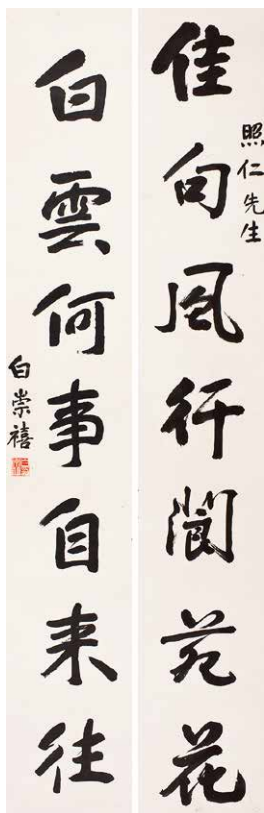 照仁先生
佳句風行閬苑花
白雲何事自来往
白崇禧